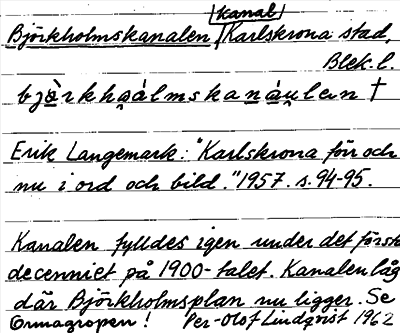 kanal
Björkholmskanalen Karlskrona stad,
Blek. l.
bjö̀rkhå̀álmskanáulen †
Erik Langemark: "Karlskrona förr och
nu i ord och bild." 1957. s. 94-95.
Kanalen fylldes igen under det först
decenniet på 1900-talet. Kanalen låg
där Björkholmsplan nu ligger. Se
Grönagropen! Per-Olof Lindqvist 1962